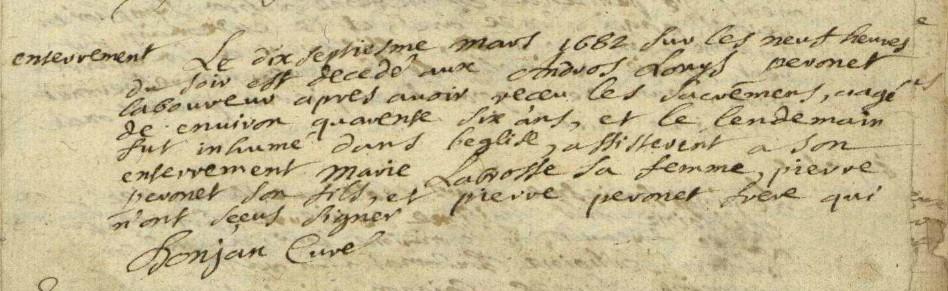 enterrement Le dixseptiesme mars 1682 sur les neuf heures
du soir est decedé aux Andros Louys peronet
laboureur apres avoir receu les sacremens, aagé
de environ quarente six ans, et le lendemain
fut inhumé dans leglise, assisterent a son
enterrement marie Labrosse sa femme, pierre
peronet son fils, et pierre peronet frere qui
n'ont sceus signer
Bonjan Curé